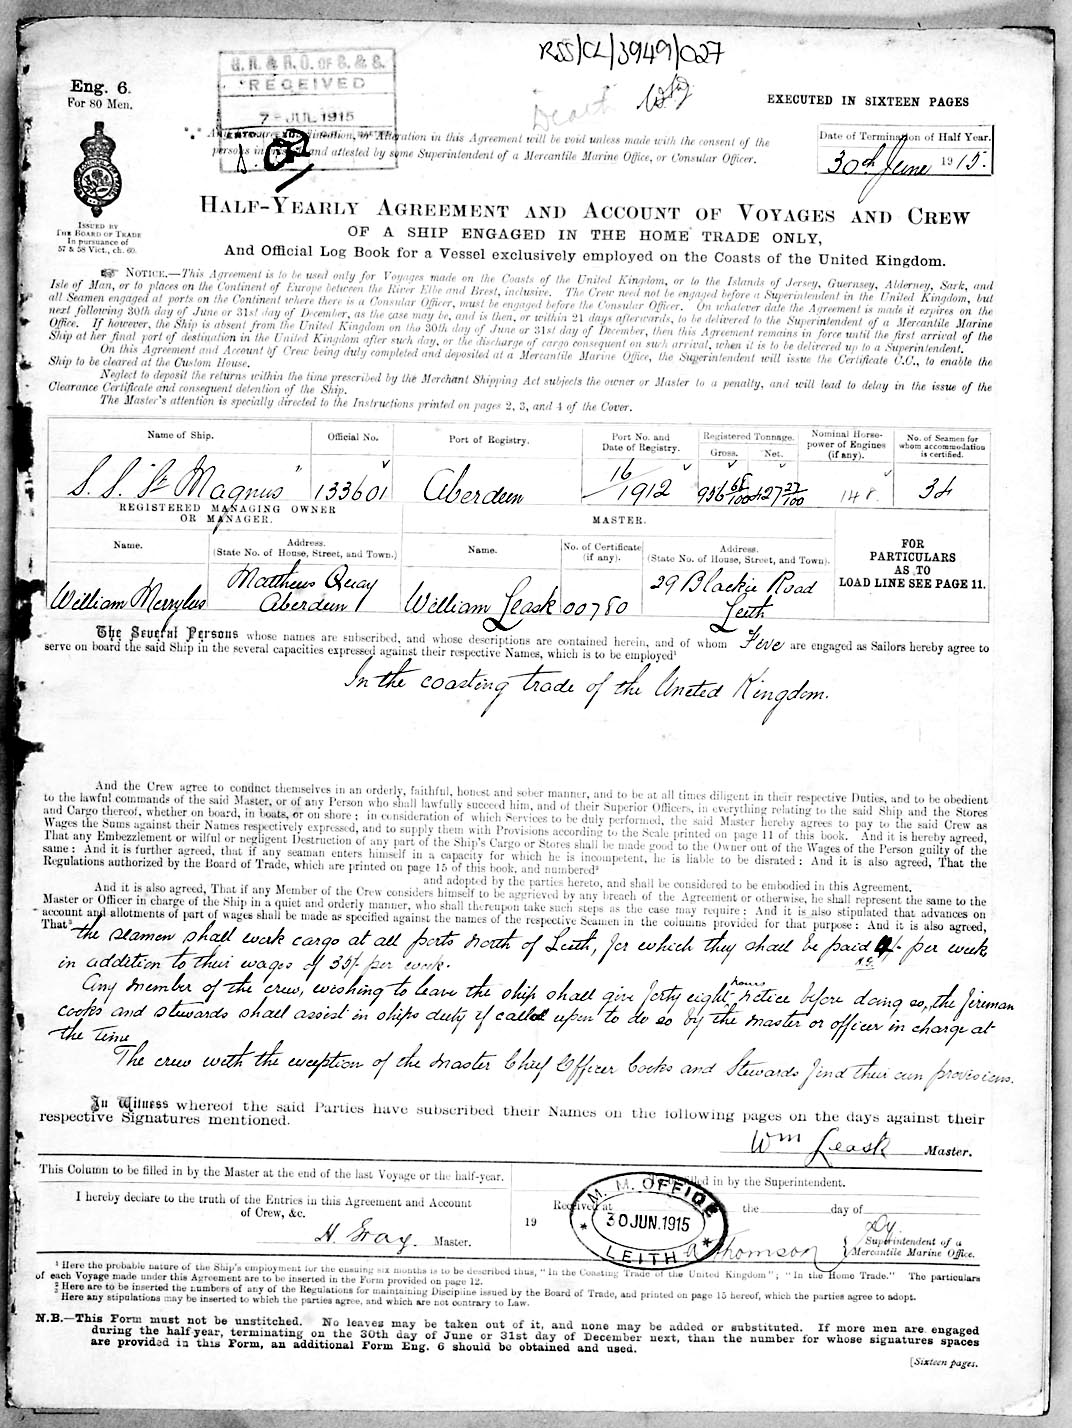 RSS/CL/3949/027
G. R. & R. O. OF S. & S.
RECEIVED
7 - JUL 1915
Eng. 6.
For 80 Men.
EXECUTED IN SIXTEEN PAGES
Date of Termination of Half Year.
30th June 1915.
Alteration in this Agreement will be void unless made with the consent of the
persons and attested by some Superintendent of a Mercantile Marine Office, or Consular Officer.
ISSUED BY
THE BOARD OF TRADE
In pursuance of
57 & 58 Vict., ch. 60.
HALF-YEARLY AGREEMENT AND ACCOUNT OF VOYAGES AND CREW
OF A SHIP ENGAGED IN THE HOME TRADE ONLY,
And Official Log Book for a Vessel exclusively employed on the Coasts of the United Kingdom.
NOTICE.—This Agreement is to be used only for Voyages made on the Coasts of the United Kingdom, or to the Islands of Jersey, Guernsey, Alderney, Sark, and
Isle of Man, or to places on the Continent of Europe between the River Elbe and Brest, inclusive. The Crew need not be engaged before a Superintendent in the United Kingdom, but
all Seamen engaged at ports on the Continent where there is a Consular Officer, must be engaged before the Consular Officer. On whatever date the Agreement is made it expires on the
next following 30th day of June or 31st day of December, as the case may be, and is then, or within 21 days afterwards, to be delivered to the Superintendent of a Mercantile Marine
Office. If however, the Ship is absent from the United Kingdom on the 30th day of June or 31st day of December, then this Agreement remains in force until the first arrival of the
Ship at her final port of destination in the United Kingdom after such day, or the discharge of cargo consequent on such arrival, when it is to be delivered up to a Superintendent.
On this Agreement and Account of Crew being duly completed and deposited at a Mercantile Marine Office, the Superintendent will issue the Certificate C.C., to enable the
Ship to be cleared at the Custom House.
Neglect to deposit the returns within the time prescribed by the Merchant Shipping Act subjects the owner or Master to a penalty, and will lead to delay in the issue of the
Clearance Certificate and consequent detention of the Ship.
The Master's attention is specially directed to the Instructions printed on pages 2, 3, and 4 of the Cover.
Name of Ship. Official No. Port of Registry. Port No. and Date of Registry. Registered Tonnage. Gross. Net. Nominal Horse-power of Engines (if any). No. of Seamen for whom accommodation is certified.
S.S. "St Magnus" 133601 Aberdeen 16/1912 956 68/100 427 27/100 148 34
REGISTERED MANAGING OWNER
OR MANAGER.
MASTER.
Name. Address. (State No. of House, Street, and Town.) Name. No. of Certificate (if any). Address. (State No. of House, Street, and Town).
FOR
PARTICULARS
AS TO
LOAD LINE SEE PAGE 11.
William Merrylees Matthews Quay Aberdeen William Leask 00780 29 Blackie Road Leith
The Several Persons whose names are subscribed, and whose descriptions are contained herein, and of whom Five are engaged as Sailors hereby agree to
serve on board the said Ship in the several capacities expressed against their respective Names, which is to be employed¹
In the coasting trade of the United Kingdom.
And the Crew agree to conduct themselves in an orderly, faithful, honest and sober manner, and to be at all times diligent in their respective Duties, and to be obedient
to the lawful commands of the said Master, or of any Person who shall lawfully succeed him, and of their Superior Officers, in everything relating to the said Ship and the Stores
and Cargo thereof, whether on board, in boats, or on shore; in consideration of which Services to be duly performed, the said Master hereby agrees to pay to the said Crew as
Wages the Sums against their Names respectively expressed, and to supply them with Provisions according to the Scale printed on page 11 of this book. And it is hereby agreed,
That any Embezzlement or wilful or negligent Destruction of any part of the Ship's Cargo or Stores shall be made good to the Owner out of the Wages of the Person guilty of the
same: And it is further agreed, that if any seaman enters himself in a capacity for which he is incompetent, he is liable to be disrated: And it is also agreed, That the
Regulations authorized by the Board of Trade, which are printed on page 15 of this book, and numbered²
and adopted by the parties hereto, and shall be considered to be embodied in this Agreement.
And it is also agreed, That if any Member of the Crew considers himself to be aggrieved by any breach of the Agreement or otherwise, he shall represent the same to the
Master or Officer in charge of the Ship in a quiet and orderly manner, who shall thereupon take such steps as the case may require: And it is also stipulated that advances on
account and allotments of part of wages shall be made as specified against the names of the respective Seamen in the columns provided for that purpose: And it is also agreed,
That³ the seamen shall work cargo at all ports North of Leith, for which they shall be paid 4/- per week
in addition to their wages of 35/- per week.
Any member of the crew, wishing to leave the ship shall give forty eight hours notice before doing so, the fireman
cooks and stewards shall assist in ships duty if called upon to do so by the master or officer in charge at
the time
The crew with the exception of the master Chief Officer Cooks and Stewards find their own provisions.
In Witness whereof the said Parties have subscribed their Names on the following pages on the days against their
respective Signatures mentioned.
Wm Leask Master.
This Column to be filled in by the Master at the end of the last Voyage or the half-year.
I hereby declare to the truth of the Entries in this Agreement and Account
of Crew, &c.
H. Gray. Master.
filled in by the Superintendent.
Received at the day of
19
M. M. OFFICE
30 JUN. 1915
LEITH
A Thomson
Dy.
Superintendent of a
Mercantile Marine Office.
¹ Here the probable nature of the Ship's employment for the ensuing six months is to be described thus, "In the Coasting Trade of the United Kingdom"; "In the Home Trade." The particulars
of each Voyage made under this Agreement are to be inserted in the Form provided on page 12.
² Here are to be inserted the numbers of any of the Regulations for maintaining Discipline issued by the Board of Trade, and printed on page 15 hereof, which the parties agree to adopt.
³ Here any stipulations may be inserted to which the parties agree, and which are not contrary to Law.
N.B.—This Form must not be unstitched. No leaves may be taken out of it, and none may be added or substituted. If more men are engaged
during the half-year, terminating on the 30th day of June or 31st day of December next, than the number for whose signatures spaces
are provided in this Form, an additional Form Eng. 6 should be obtained and used.
[Sixteen pages.